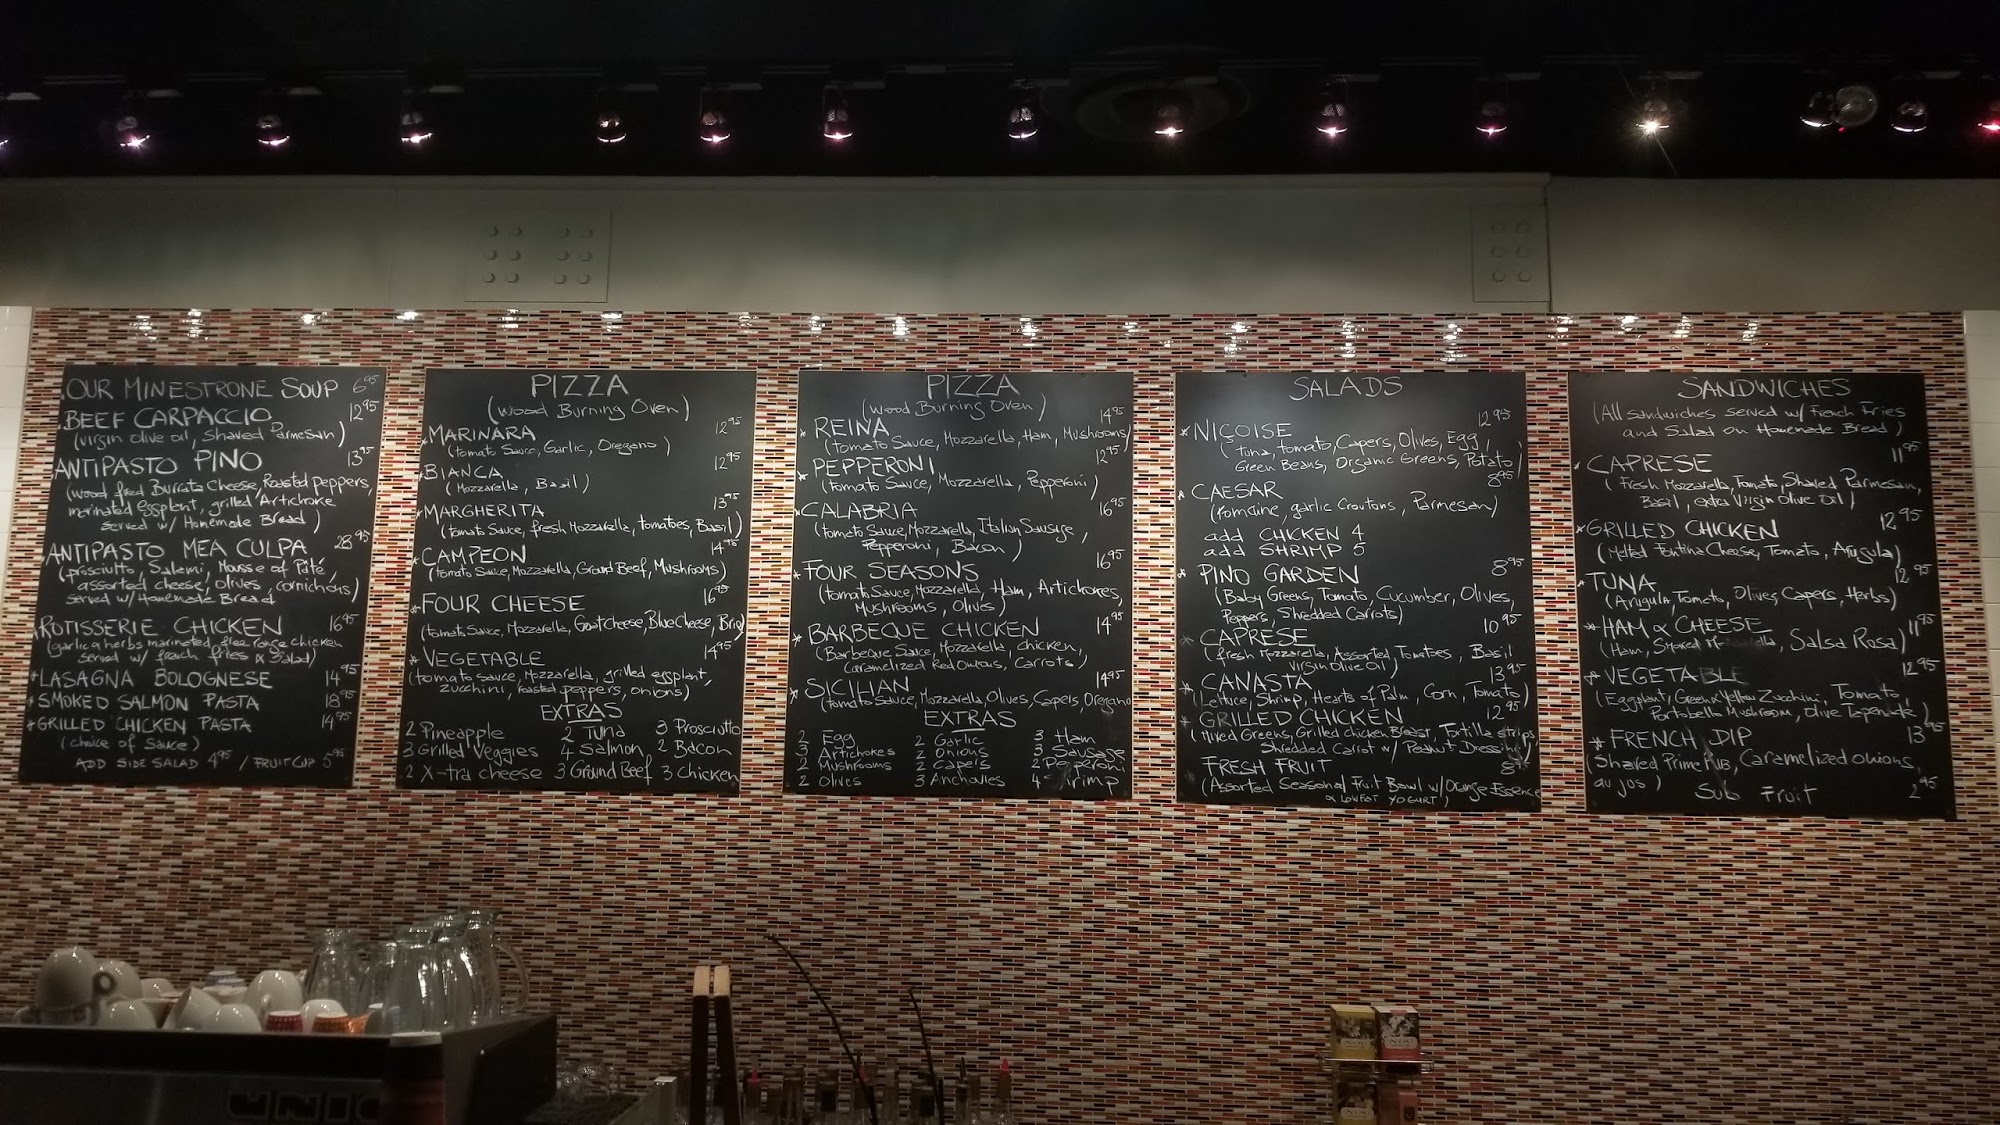 OUR MINESTRONE SOUP 6.95
BEEF CARPACCIO 12.95
(virgin olive oil, Shaved Parmesan)
ANTIPASTO PINO 13.95
(wood fired Burrata Cheese, Roasted peppers,
marinated eggplant, grilled Artichoke
served w/ Homemade Bread)
ANTIPASTO MEA CULPA 28.95
(prosciutto, Salami, Mousse of Pâté,
assorted cheese, olives, cornichons)
served w/ Homemade Bread
ROTISSERIE CHICKEN 16.95
(garlic & herbs marinated free range chicken
served w/ french fries & Salad)
*LASAGNA BOLOGNESE 14.95
*SMOKED SALMON PASTA 18.95
*GRILLED CHICKEN PASTA 14.95
(choice of Sauce)
ADD SIDE SALAD 4.95 / FRUIT CUP 5.95
PIZZA
(Wood Burning Oven)
*MARINARA 12.95
(tomato Sauce, Garlic, Oregano)
*BIANCA 12.95
(Mozzarella, Basil)
*MARGHERITA 13.95
(tomato Sauce, fresh Mozzarella, tomatoes, Basil)
*CAMPEON 14.95
(tomato Sauce, Mozzarella, Ground Beef, Mushrooms)
*FOUR CHEESE 16.95
(tomato Sauce, Mozzarella, Goat cheese, Blue Cheese, Brie)
*VEGETABLE 14.95
(tomato sauce, Mozzarella, grilled eggplant,
zucchini, roasted peppers, onions)
EXTRAS
2 Pineapple 2 Tuna 3 Prosciutto
3 Grilled Veggies 4 Salmon 2 Bacon
2 X-tra cheese 3 Ground Beef 3 Chicken
PIZZA
(Wood Burning Oven)
*REINA 14.95
(tomato Sauce, Mozzarella, Ham, Mushrooms)
*PEPPERONI 12.95
(tomato Sauce, Mozzarella, Pepperoni)
*CALABRIA 16.95
(tomato Sauce, Mozzarella, Italian Sausage,
Pepperoni, Bacon)
*FOUR SEASONS 16.95
(tomato Sauce, Mozzarella, Ham, Artichokes,
Mushrooms, Olives)
*BARBEQUE CHICKEN 14.95
(Barbeque Sauce, Mozzarella, Chicken,
Caramelized Red Onions, Carrots)
*SICILIAN 14.95
(tomato Sauce, Mozzarella, Olives, Capers, Oregano
EXTRAS
2 Egg 2 Garlic 3 Ham
3 Artichokes 2 Onions 3 Sausage
2 Mushrooms 2 Capers 2 Pepperoni
2 Olives 3 Anchovies 4 Shrimp
SALADS
*NIÇOISE 12.95
(tuna, tomato, Capers, Olives, Egg,
Green Beans, Organic Greens, Potato)
*CAESAR 8.95
(romaine, garlic Croutons, Parmesan)
add CHICKEN 4
add SHRIMP 5
*PINO GARDEN 8.95
(Baby Greens, Tomato, Cucumber, Olives,
Peppers, Shredded Carrots)
*CAPRESE 10.95
(fresh Mozzarella, Assorted Tomatoes, Basil
Virgin Olive Oil)
*CANASTA 13.95
(Lettuce, Shrimp, Hearts of Palm, Corn, Tomato)
*GRILLED CHICKEN 12.95
(Mixed Greens, Grilled chicken Breast, Tortilla strips
Shredded Carrot w/ Peanut Dressing)
FRESH FRUIT 8.95
(Assorted Seasonal Fruit Bowl w/ Orange Essence
& LOWFAT YOGURT)
SANDWICHES
(All sandwiches served w/ French Fries
and Salad on Homemade Bread)
*CAPRESE 11.95
(Fresh Mozzarella, Tomato, Shaved Parmesan,
Basil, extra Virgin Olive Oil)
*GRILLED CHICKEN 12.95
(Melted Fontina Cheese, Tomato, Arugula)
*TUNA 12.95
(Arugula, Tomato, Olives, Capers, Herbs)
*HAM & CHEESE 11.95
(Ham, Smoked Mozzarella, Salsa Rosa)
*VEGETABLE 12.95
(Eggplant, Green & Yellow Zucchini, Tomato,
Portobello Mushroom, Olive Tapenade)
*FRENCH DIP 13.95
(Shaved Prime Rib, Caramelized onions,
au jos)
Sub Fruit 2.95
UNIC